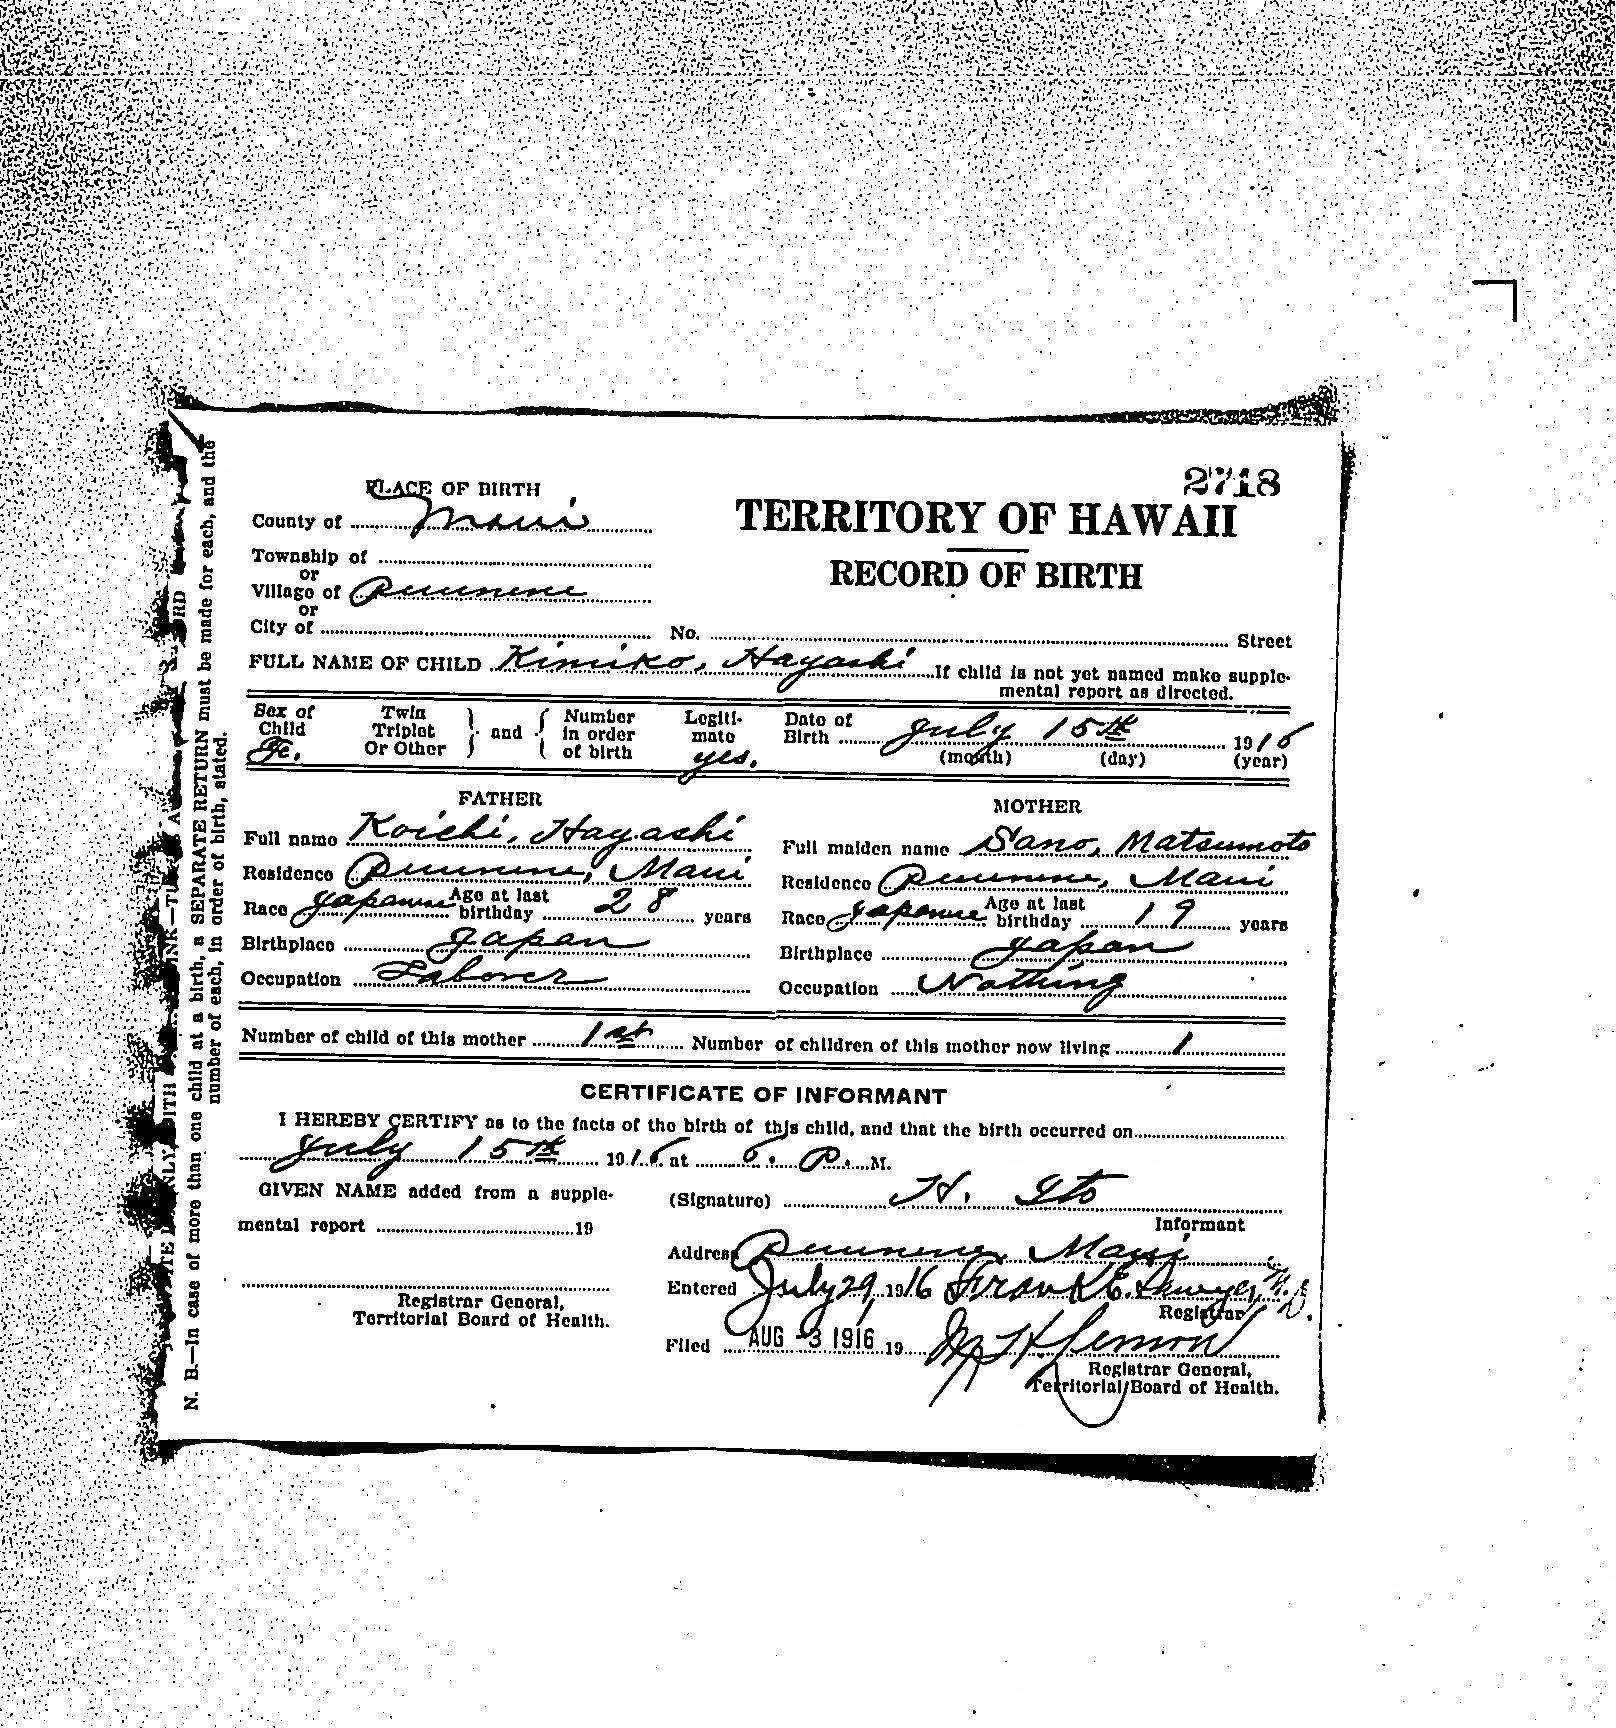 2718
PLACE OF BIRTH
TERRITORY OF HAWAII
RECORD OF BIRTH
County of Maui
Township of
or
Village of Puunene
or
City of No. Street
FULL NAME OF CHILD Kimiko, Hayashi If child is not yet named make supple-
mental report as directed.
Sex of Child Fe. Twin Triplet Or Other } and { Number in order of birth Legiti- mate yes. Date of Birth July 15th 1916
(month) (day) (year)
FATHER
Full name Koichi, Hayashi
Residence Puunene, Maui
Race Japanese Age at last birthday 28 years
Birthplace Japan
Occupation Laborer
MOTHER
Full maiden name Sano, Matsumoto
Residence Puunene, Maui
Race Japanese Age at last birthday 19 years
Birthplace Japan
Occupation Nothing
Number of child of this mother 1st Number of children of this mother now living 1
CERTIFICATE OF INFORMANT
I HEREBY CERTIFY as to the facts of the birth of this child, and that the birth occurred on
July 15th 1916 at 6. P. M.
GIVEN NAME added from a supple-
mental report 19
Registrar General,
Territorial Board of Health.
(Signature) H. Ito
Informant
Address Puunene, Maui
Entered July 29, 1916 Frank E. Sawyer, M.D.
Registrar
Filed AUG -3 1916 19
Registrar General,
Territorial Board of Health.
N. B.—In case of more than one child at a birth, a SEPARATE RETURN must be made for each, and the
number of each, in order of birth, stated.